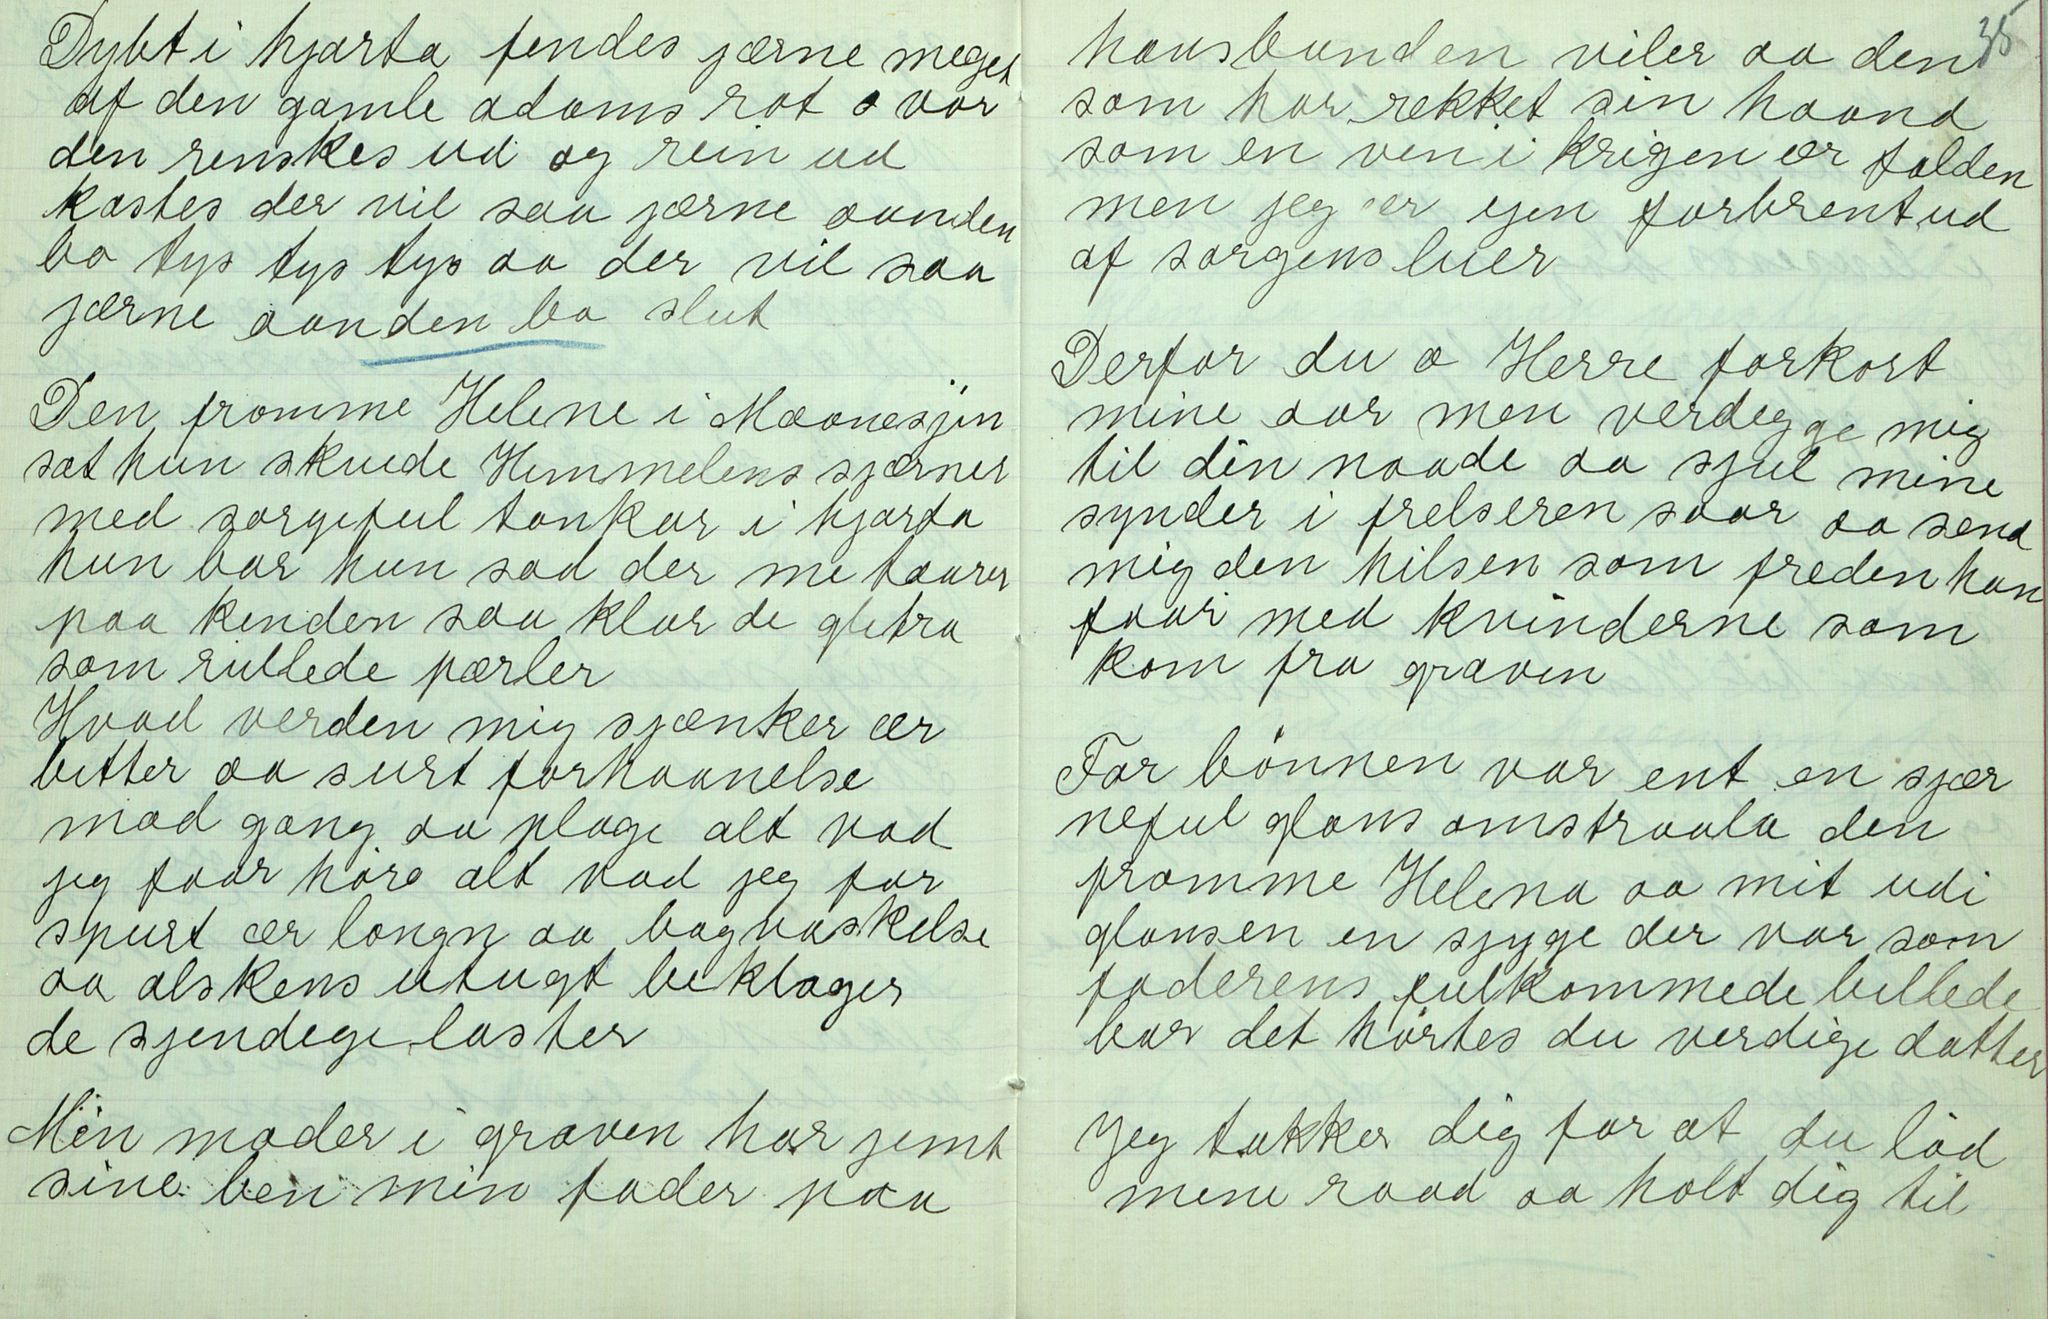 Dybt i hjarta fendes jærne meget
af den gamle adams rot o vor
den renskes ud og rein ud
kastes der vil saa jærne aanden
bo tys tys tys aa der vil saa
jærne aanden bo slut
Den fromme Helene i Maanesjin
sat hun skuede Himmelens sjærner
med sorgeful tankar i hjarta
hun bar hun sad der me taarer
paa kenden saa klar de glitra
som rullede pærler
Hvad verden mig sjænker ær
bitter aa surt forhaanelse
mod gang aa plage alt vad
jeg faar høre alt vad jeg for
spurt ær longn aa bagvaskelse
aa alskens utugt beklager
de sjendege laster
Min moder i graven har jemt
sine ben min fader paa
35
hausbunden viler aa den
som har rekket sin haand
som en ven i krigen ær falden
men jeg er ijen forbrent ud
af sorgens luer
Derfor du o Herre forkort
mine aar men verdegge mig
til din naade aa sjul mine
synder i frelseren saar aa send
mig den hilsen som freden han
faar med kvinderne som
kom fra graven
For bönnen var ent en sjær
neful glans omstraala den
fromme Helena aa mit udi
glansen en sjyge der var som
faderens fulkommede billede
bar det hørtes du verdige datter
Jeg takker dig for at du löd
mene raad aa holt dig til